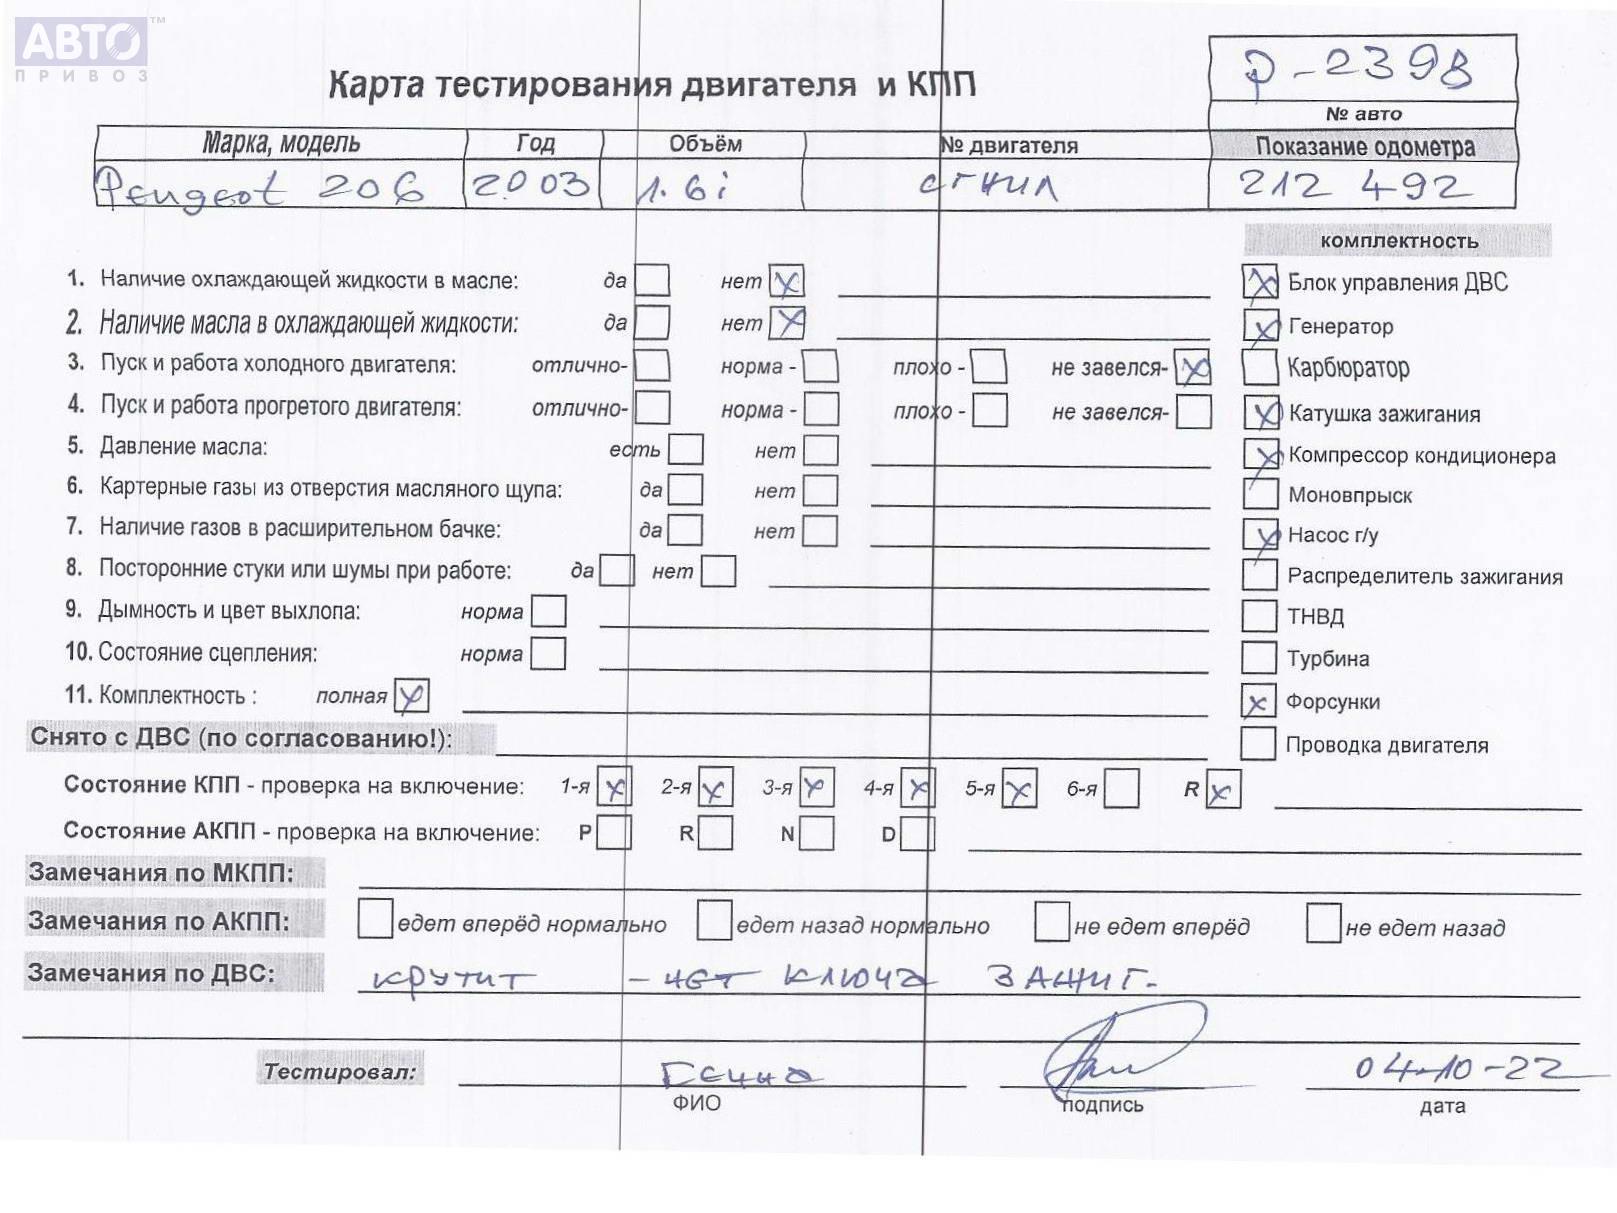 АВТО™
ПРИВОЗ
Карта тестирования двигателя и КПП
р-2398
№ авто
Марка, модель Год Объём № двигателя Показание одометра
Peugeot 206 2003 1.6i сгнил 212 492
комплектность
1. Наличие охлаждающей жидкости в масле: да нет x Блок управления ДВС x
2. Наличие масла в охлаждающей жидкости: да нет x Генератор x
3. Пуск и работа холодного двигателя: отлично- норма - плохо - не завелся- x Карбюратор
4. Пуск и работа прогретого двигателя: отлично- норма - плохо - не завелся- x Катушка зажигания
5. Давление масла: есть нет x Компрессор кондиционера
6. Картерные газы из отверстия масляного щупа: да нет Моновпрыск
7. Наличие газов в расширительном бачке: да нет x Насос г/у
8. Посторонние стуки или шумы при работе: да нет Распределитель зажигания
9. Дымность и цвет выхлопа: норма ТНВД
10. Состояние сцепления: норма Турбина
11. Комплектность : полная x x Форсунки
Снято с ДВС (по согласованию!): Проводка двигателя
Состояние КПП - проверка на включение: 1-я x 2-я x 3-я x 4-я x 5-я x 6-я R x
Состояние АКПП - проверка на включение: P R N D
Замечания по МКПП:
Замечания по АКПП: едет вперёд нормально едет назад нормально не едет вперёд не едет назад
Замечания по ДВС: крутит - нет ключа зажиг.
Тестировал: Гена 04-10-22
ФИО подпись дата